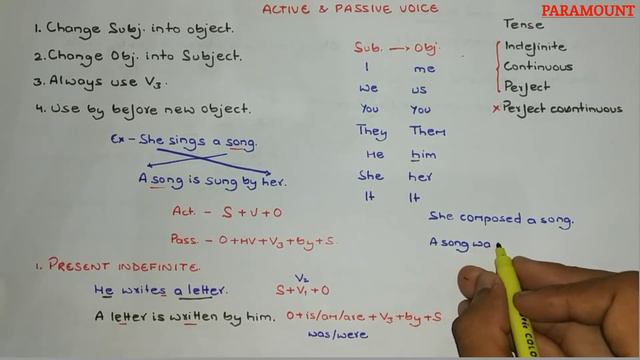 PARAMOUNT
ACTIVE & PASSIVE VOICE
1. Change Subj. into object.
2. Change Obj. into Subject.
3. Always use V3.
4. Use by before new object.
Ex - She sings a song.
A song is sung by her.
Act. - S + V + O
Pass. - O + HV + V3 + by + S
1. PRESENT INDEFINITE.
He writes a letter.
A letter is written by him.
V2
S + V1 + O
O + is/am/are + V3 + by + S
was/were
Sub. → Obj.
I me
We us
You You
They Them
He him
She her
It It
Tense
Indefinite
Continuous
Perfect
× Perfect countinuous
She composed a song.
A song wa